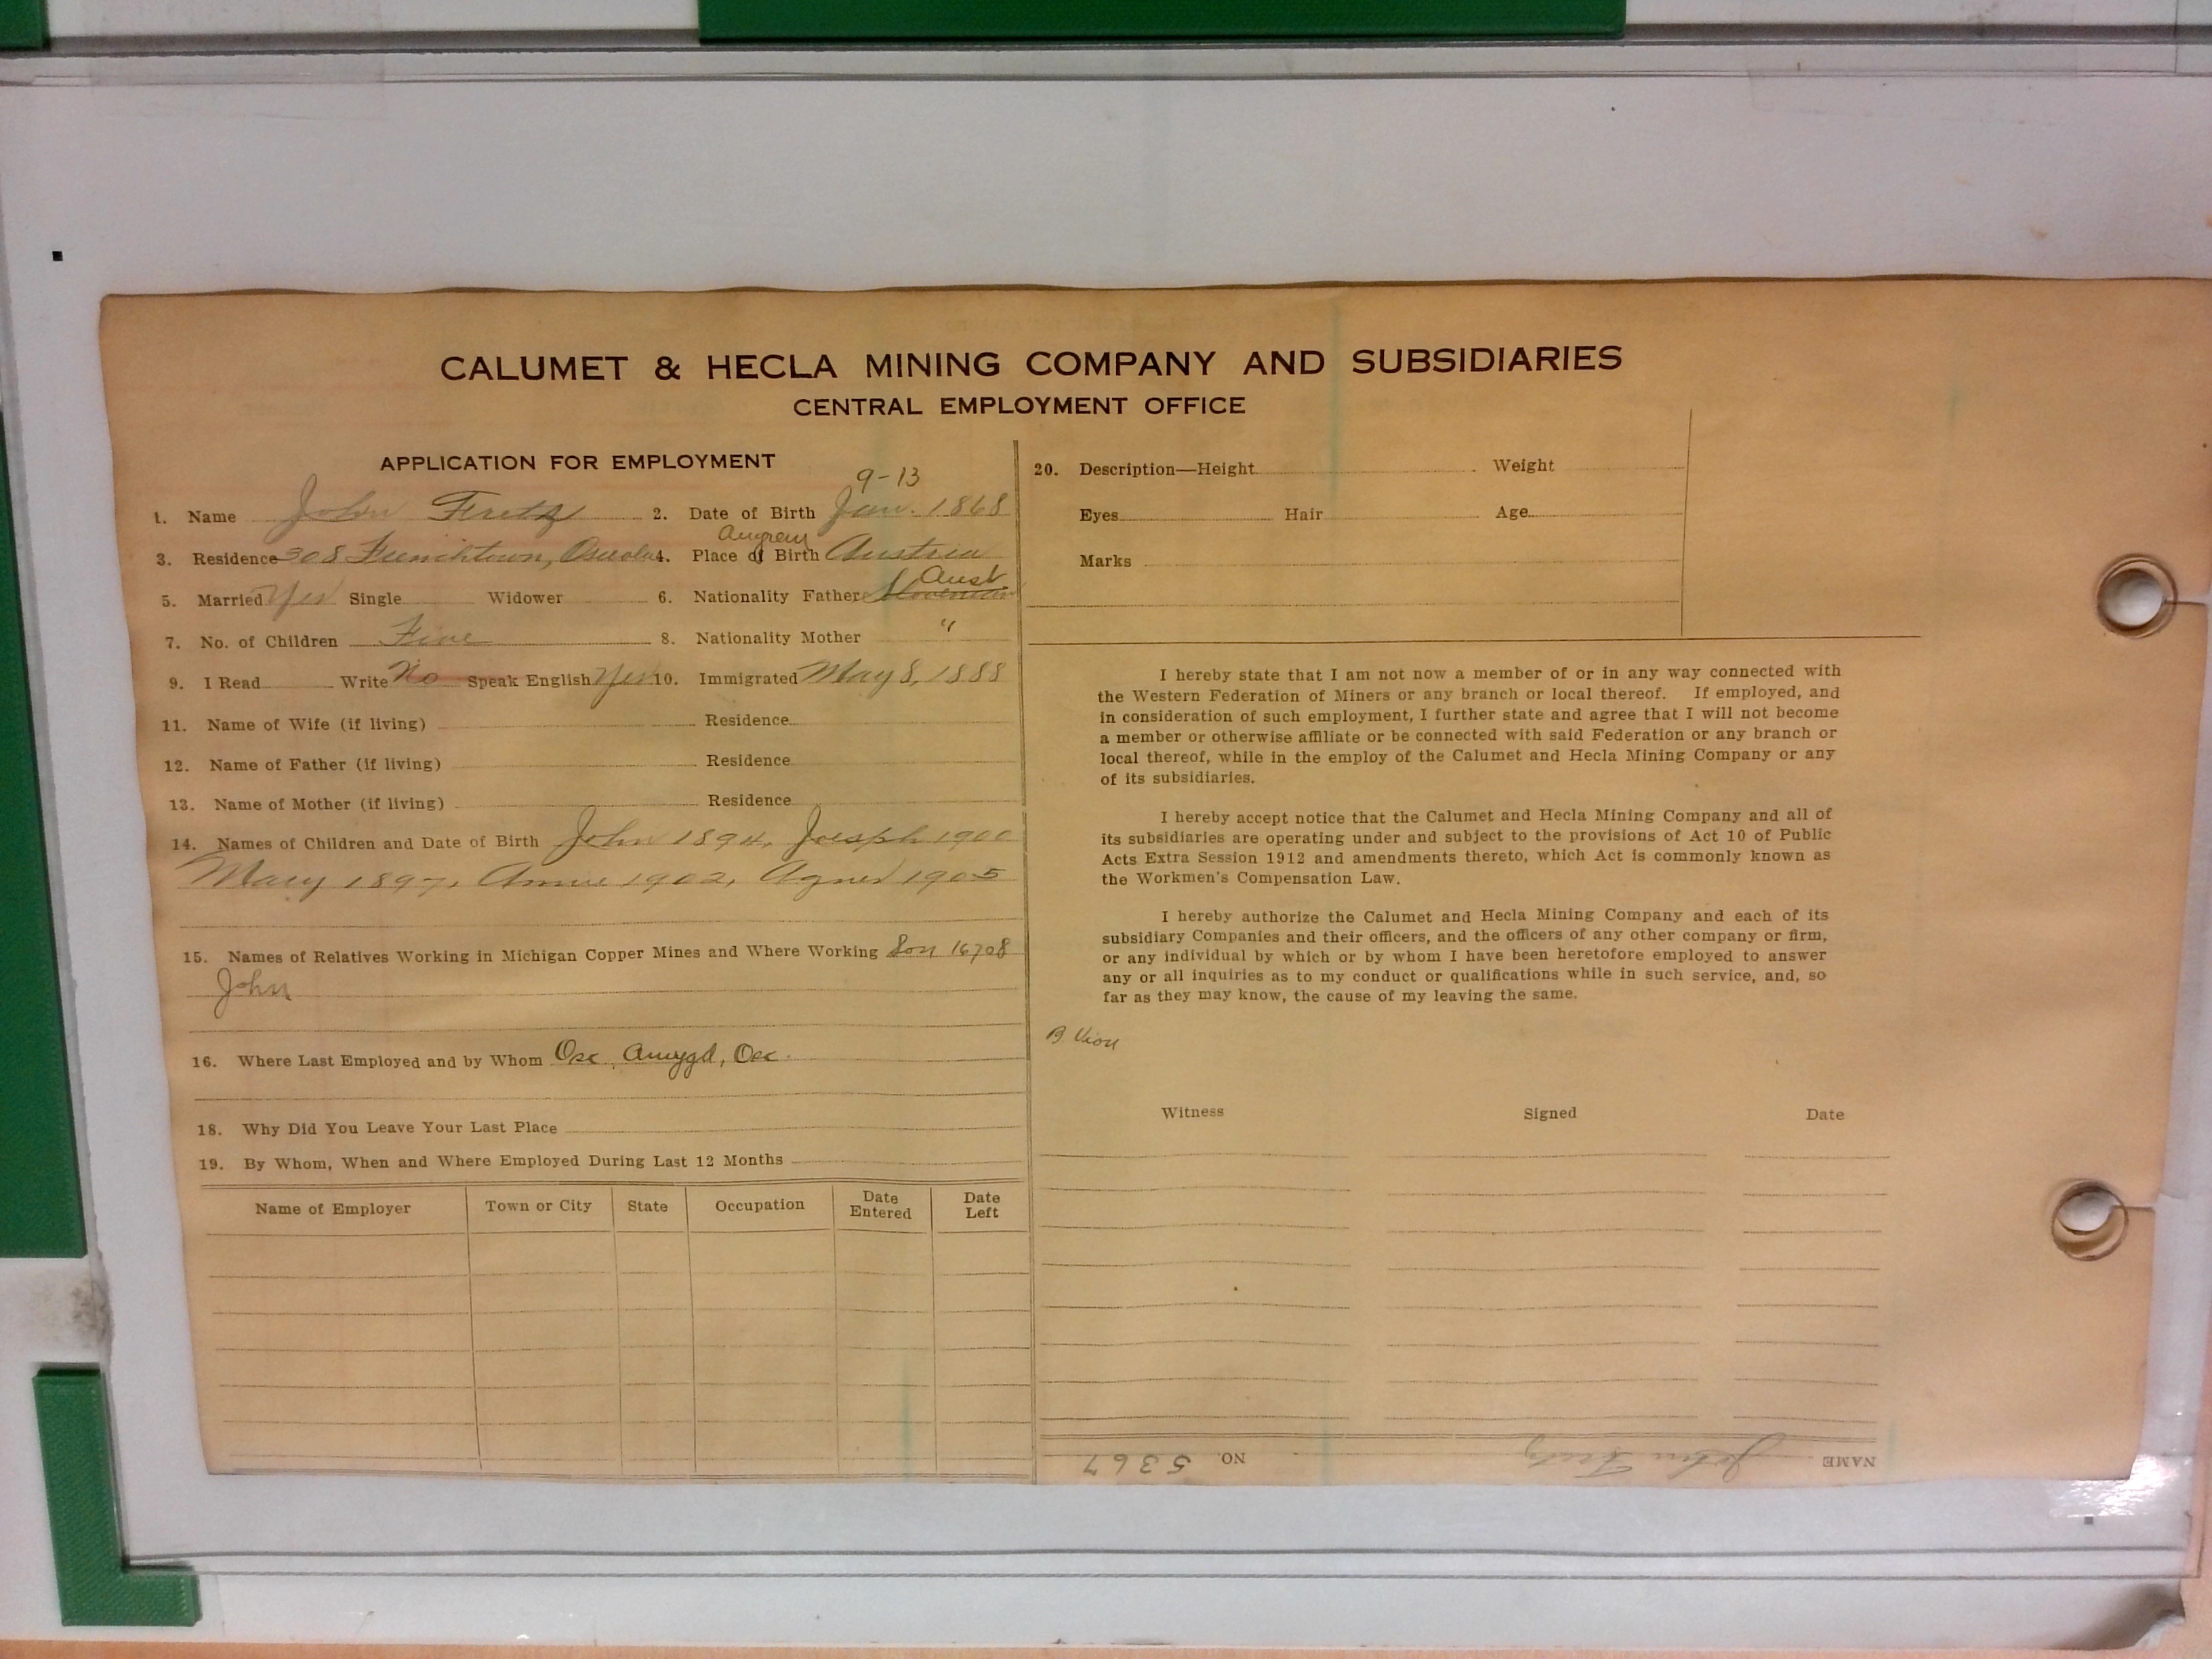 CALUMET & HECLA MINING COMPANY AND SUBSIDIARIES
CENTRAL EMPLOYMENT OFFICE
APPLICATION FOR EMPLOYMENT
9-13
1. Name John Fretz 2. Date of Birth Jan. 1868
3. Residence 308 Frenchtown, Osceola 4. Place of Birth Austria
Aust.
5. Married Yes Single Widower 6. Nationality Father Slovenian
7. No. of Children Five 8. Nationality Mother "
9. I Read Write No Speak English Yes 10. Immigrated May 8, 1888
11. Name of Wife (if living) Residence
12. Name of Father (if living) Residence
13. Name of Mother (if living) Residence
14. Names of Children and Date of Birth John 1894, Joesph 1900
Mary 1897, Annie 1902, Agnes 1905
15. Names of Relatives Working in Michigan Copper Mines and Where Working Son 16708
John
16. Where Last Employed and by Whom Osc. Amygd, Osc.
18. Why Did You Leave Your Last Place
19. By Whom, When and Where Employed During Last 12 Months
Name of Employer Town or City State Occupation Date Entered Date Left
20. Description—Height Weight
Eyes Hair Age
Marks
I hereby state that I am not now a member of or in any way connected with
the Western Federation of Miners or any branch or local thereof. If employed, and
in consideration of such employment, I further state and agree that I will not become
a member or otherwise affiliate or be connected with said Federation or any branch or
local thereof, while in the employ of the Calumet and Hecla Mining Company or any
of its subsidiaries.
I hereby accept notice that the Calumet and Hecla Mining Company and all of
its subsidiaries are operating under and subject to the provisions of Act 10 of Public
Acts Extra Session 1912 and amendments thereto, which Act is commonly known as
the Workmen's Compensation Law.
I hereby authorize the Calumet and Hecla Mining Company and each of its
subsidiary Companies and their officers, and the officers of any other company or firm,
or any individual by which or by whom I have been heretofore employed to answer
any or all inquiries as to my conduct or qualifications while in such service, and, so
far as they may know, the cause of my leaving the same.
Witness Signed Date
NAME John Fretz NO. 5367